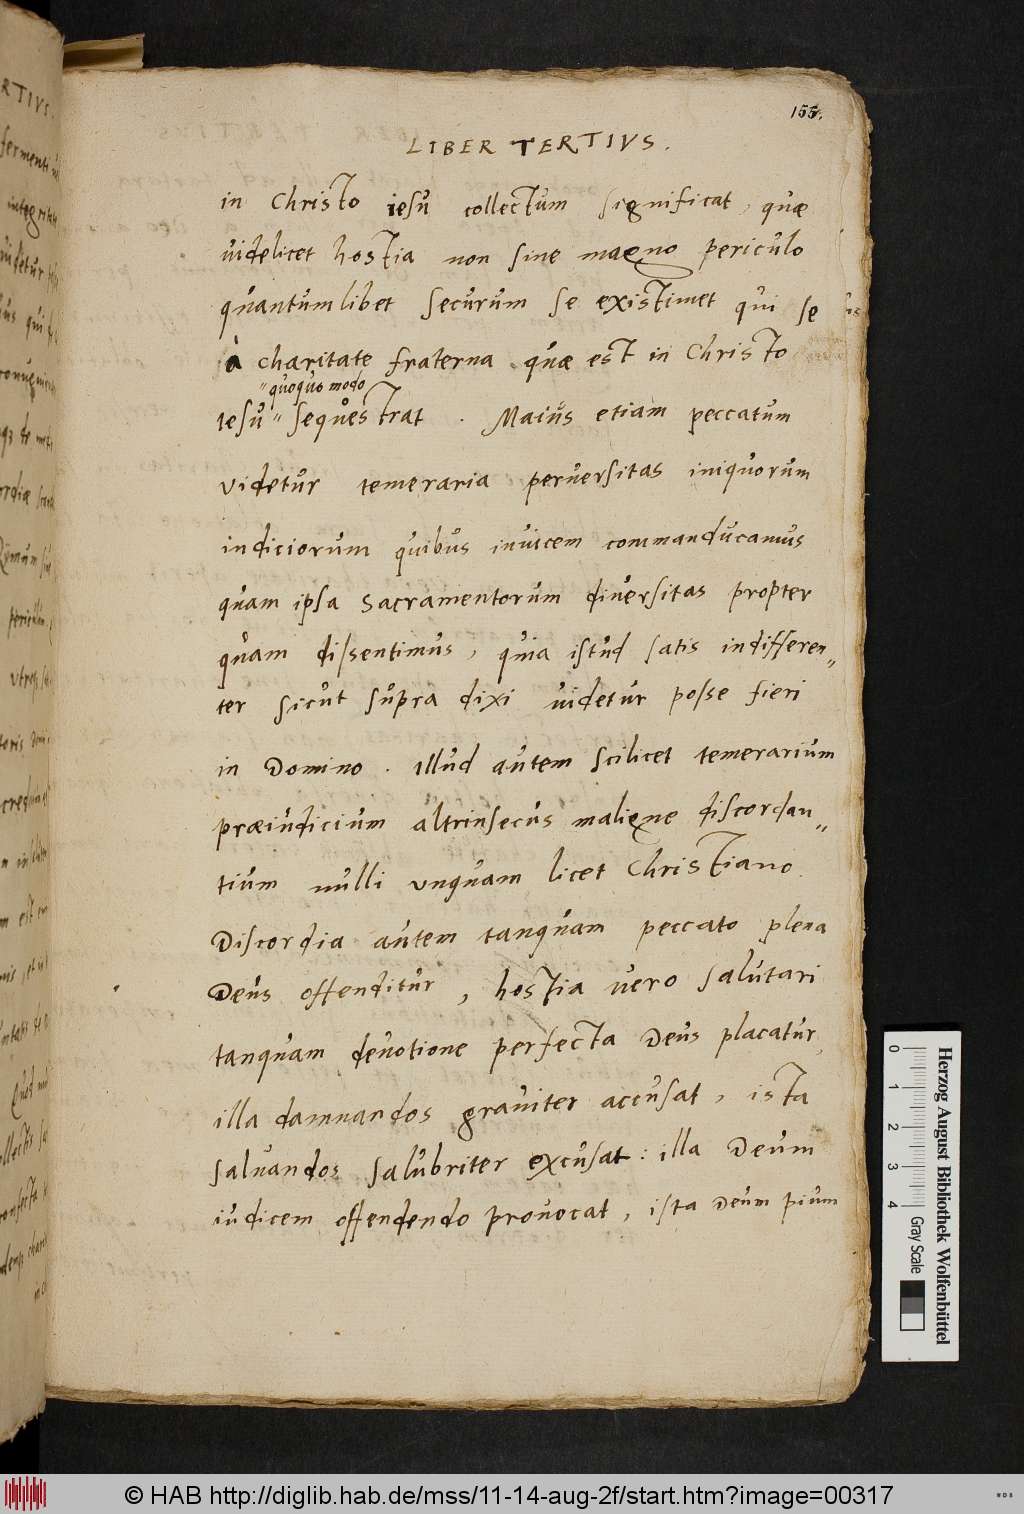 155.
LIBER TERTIVS.
in Christo iesu collectum significat, quæ
uidelicet hostia non sine magno periculo
quantumlibet securum se existimet qui se
à charitate fraterna quæ est in Christo
quoquo modo
iesu sequestrat. Maius etiam peccatum
videtur temeraria peruersitas iniquorum
indiciorum quibus inuicem commanducamus
quam ipsa sacramentorum diuersitas propter
quam dissentimus, quia istud satis indifferen„
ter sicut supra dixi uidetur posse fieri
in Domino. illud autem scilicet temerarium
præiudicium altrinsecus maligne discordan„
tium nulli unquam licet Christiano.
Discordia autem tanquam peccato plena
Deus offenditur, hostia vero salutari
tanquam deuotione perfecta Deus placatur,
illa damnandos grauiter accusat, ista
saluandos salubriter excusat: illa Deum
iudicem offendendo prouocat, ista Deum pium
RTIVS.
fermenti
integritate
uidetur
qui
Herzog August Bibliothek Wolfenbüttel
0 1 2 3 4
Gray Scale
© HAB http://diglib.hab.de/mss/11-14-aug-2f/start.htm?image=00317